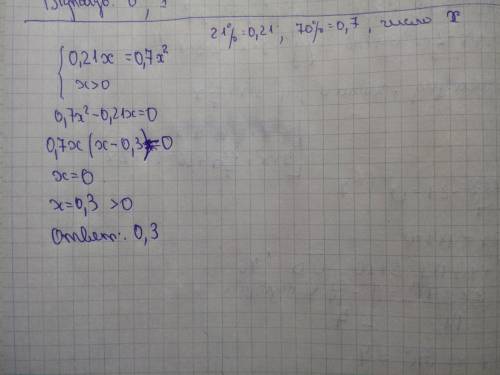 21% = 0,21; 70% = 0,7, число x
0,21x = 0,7x²
x>0
0,7x² - 0,21x = 0
0,7x(x - 0,3) = 0
x = 0
x = 0,3 >0
Ответ: 0,3